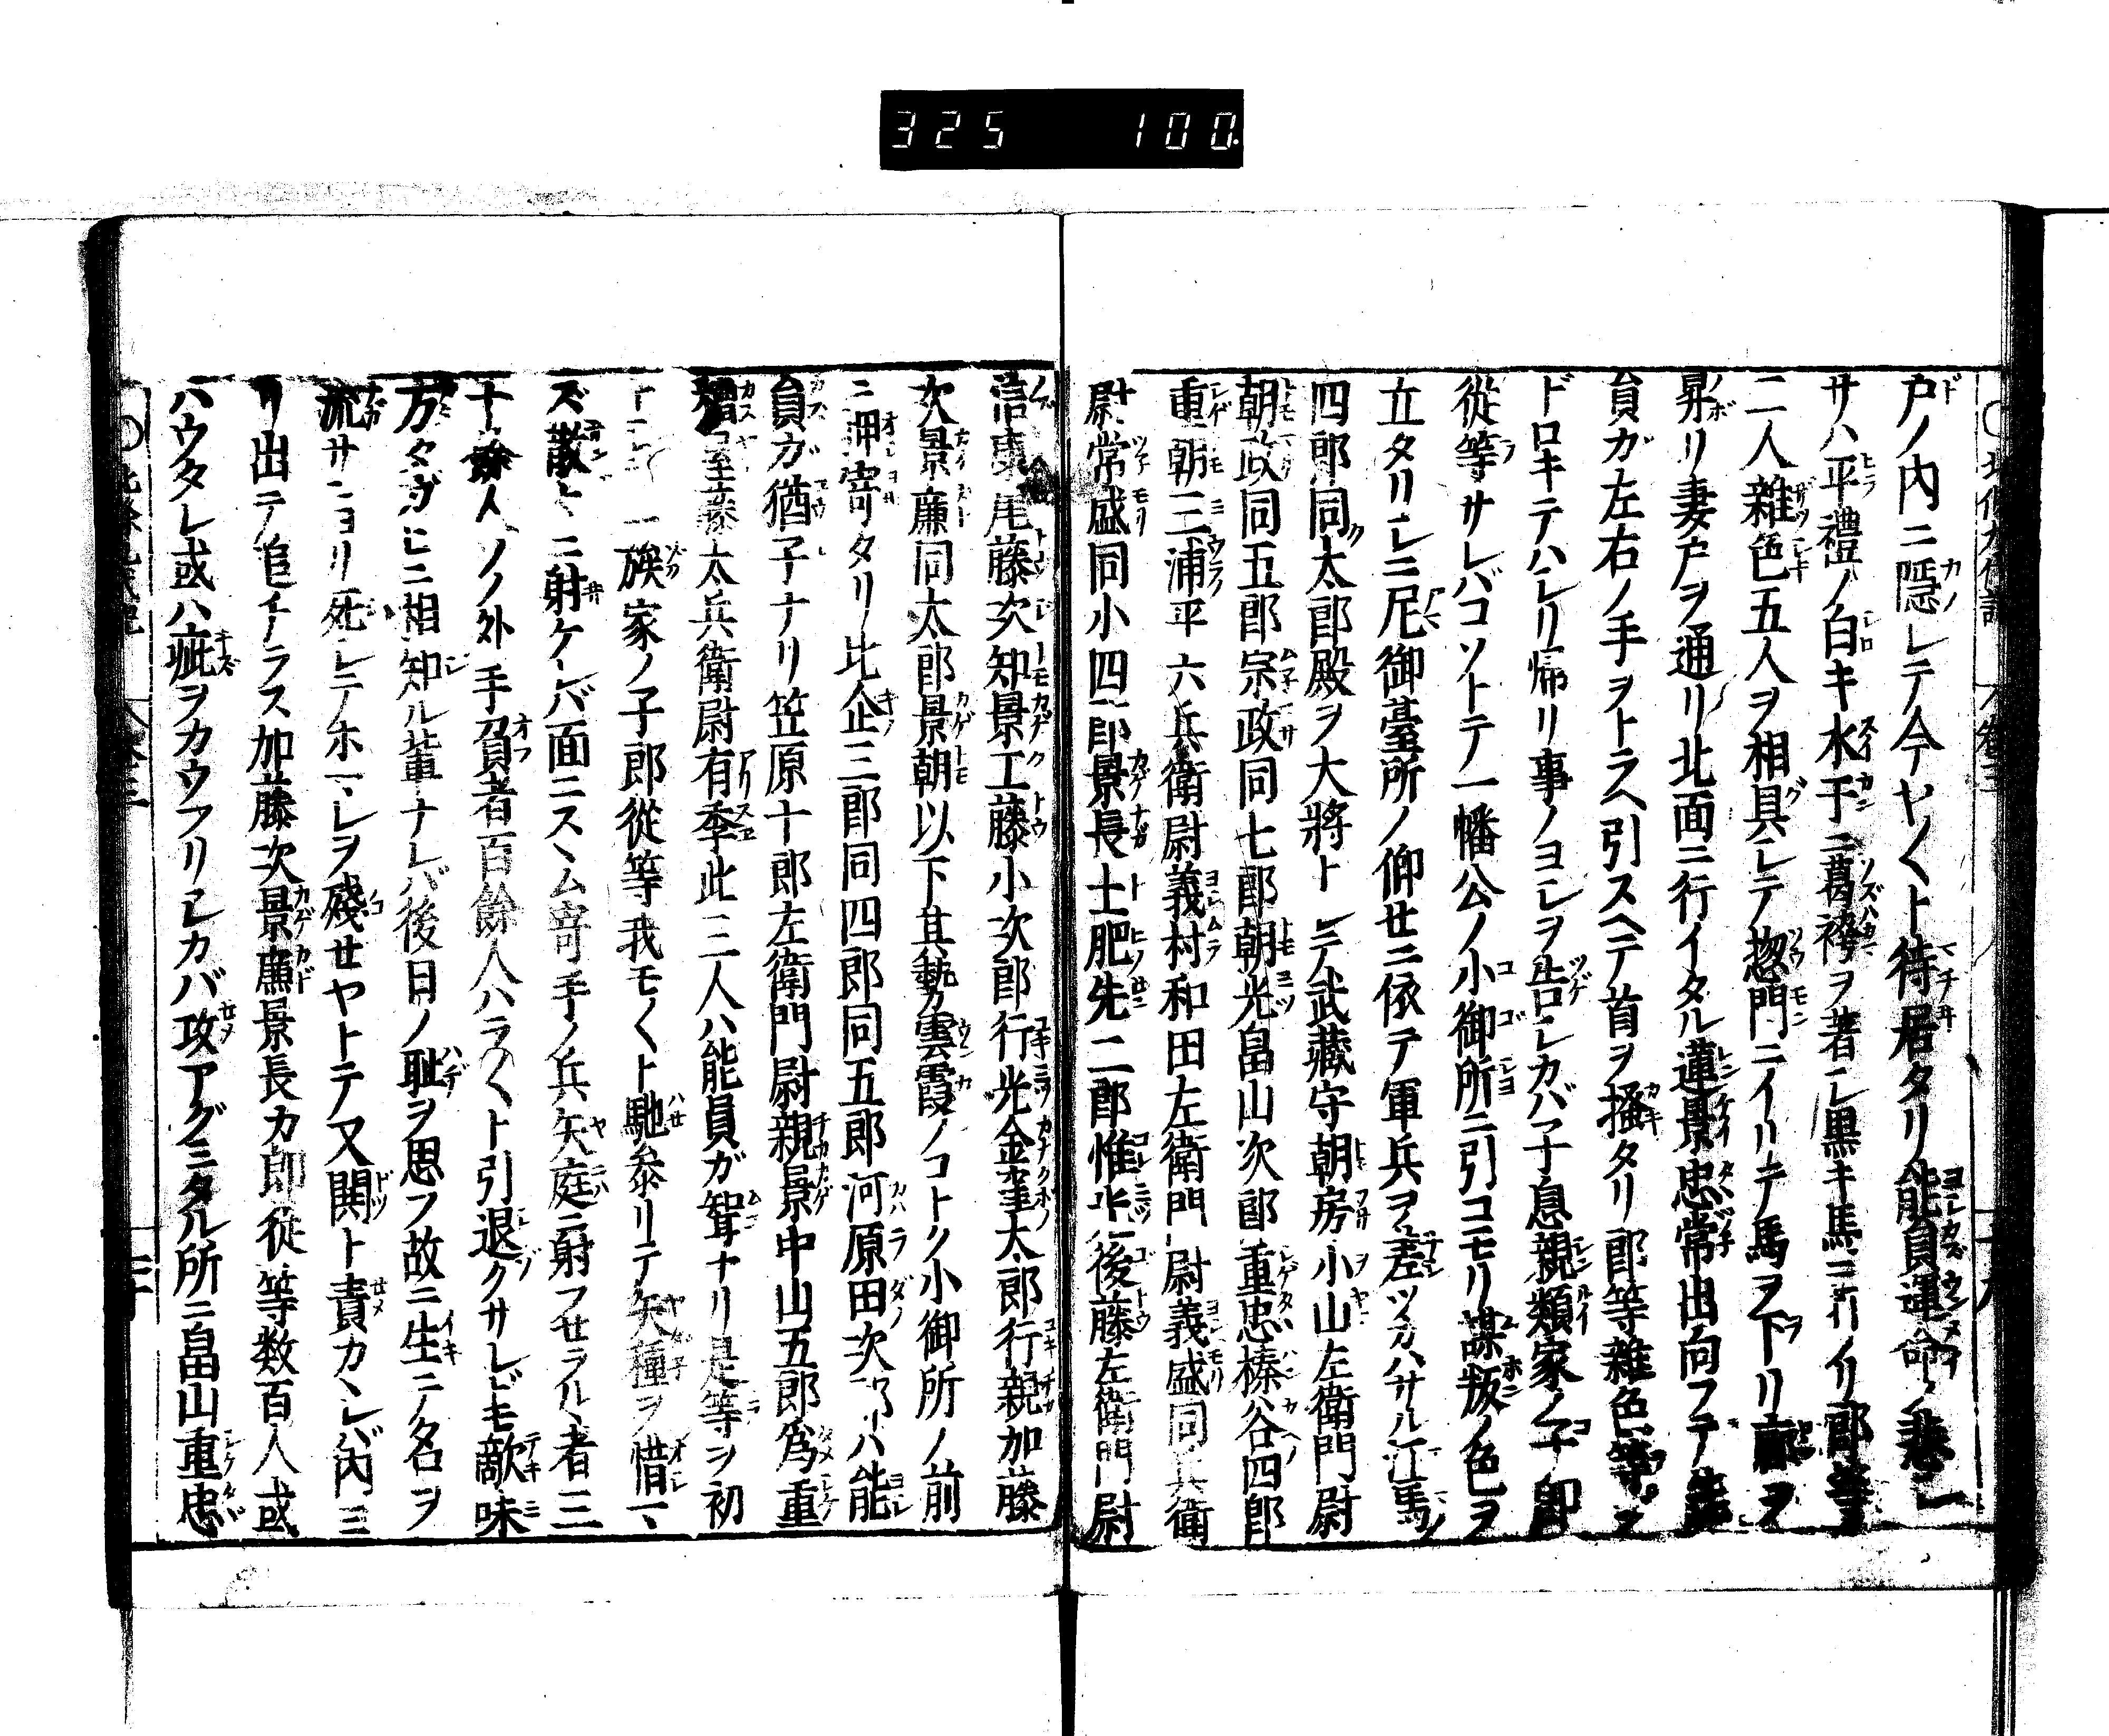 325 100.
戸ノ内ニ隠レテ今ヤ〱ト待居タリ能員運命ノ悲
サハ平禮ノ白キ水干ニ葛袴ヲ著シ黒キ馬ニノリ郎等
二人雜色五人ヲ相具シテ惣門ニイリテ馬ヲ下リ
昇リ妻戸ヲ通リ北面ニ行イタル蓮景忠常出向フテ
員ガ左右ノ手ヲトラヘ引スヘテ首ヲ掻タリ郎等雜色等
ドロキテハシリ帰リ事ノヨシヲ告シカバ子息親類家ノ子郎
從等サレバコソトテ一幡公ノ小御所ニ引コモリ謀叛ノ色ヲ
立タリシニ尼御臺所ノ仰セニ依テ軍兵ヲ差ツカハサル江馬ノ
四郎同太郎殿ヲ大將トシテ武藏守朝房小山左衛門尉
朝政同五郎宗政同七郎朝光畠山次郎重忠榛谷四郎
重朝三浦平六兵衛尉義村和田左衛門尉義盛同兵衛
尉常盛同小四郎景長土肥先二郎惟光後藤左衛門尉
信康尾藤次知景工藤小次郎行光金窪太郎行親加藤
次景廉同太郎景朝以下其勢雲霞ノコトク小御所ノ前
ニ押寄タリ比企三郎同四郎同五郎河原田次郎ハ能
員ガ猶子ナリ笠原十郎左衛門尉親景中山五郎為重
糟屋藤太兵衛尉有季此三人ハ能員ガ聟ナリ是等ヲ初
トシテ一族家ノ子郎從等我モ〱ト馳参リテ矢種ヲ惜マ
ズ散々ニ射ケレバ面ニスヽム寄手ノ兵矢庭ニ射フセラルヽ者三
十餘人ソノ外手負者百餘人ハラ〱ト引退クサレドモ敵味
方タガヒニ相知ル輩ナレバ後日ノ耻ヲ思フ故ニ生テ名ヲ
流サンヨリ死シテホマレヲ殘セヤトテ又閧ト責カヽレバ内ヨ
リ出テ追イチラス加藤次景廉景長カ郎従等数百人或
ハウタレ或ハ疵ヲカウフリシカバ攻アグミタル所ニ畠山重忠